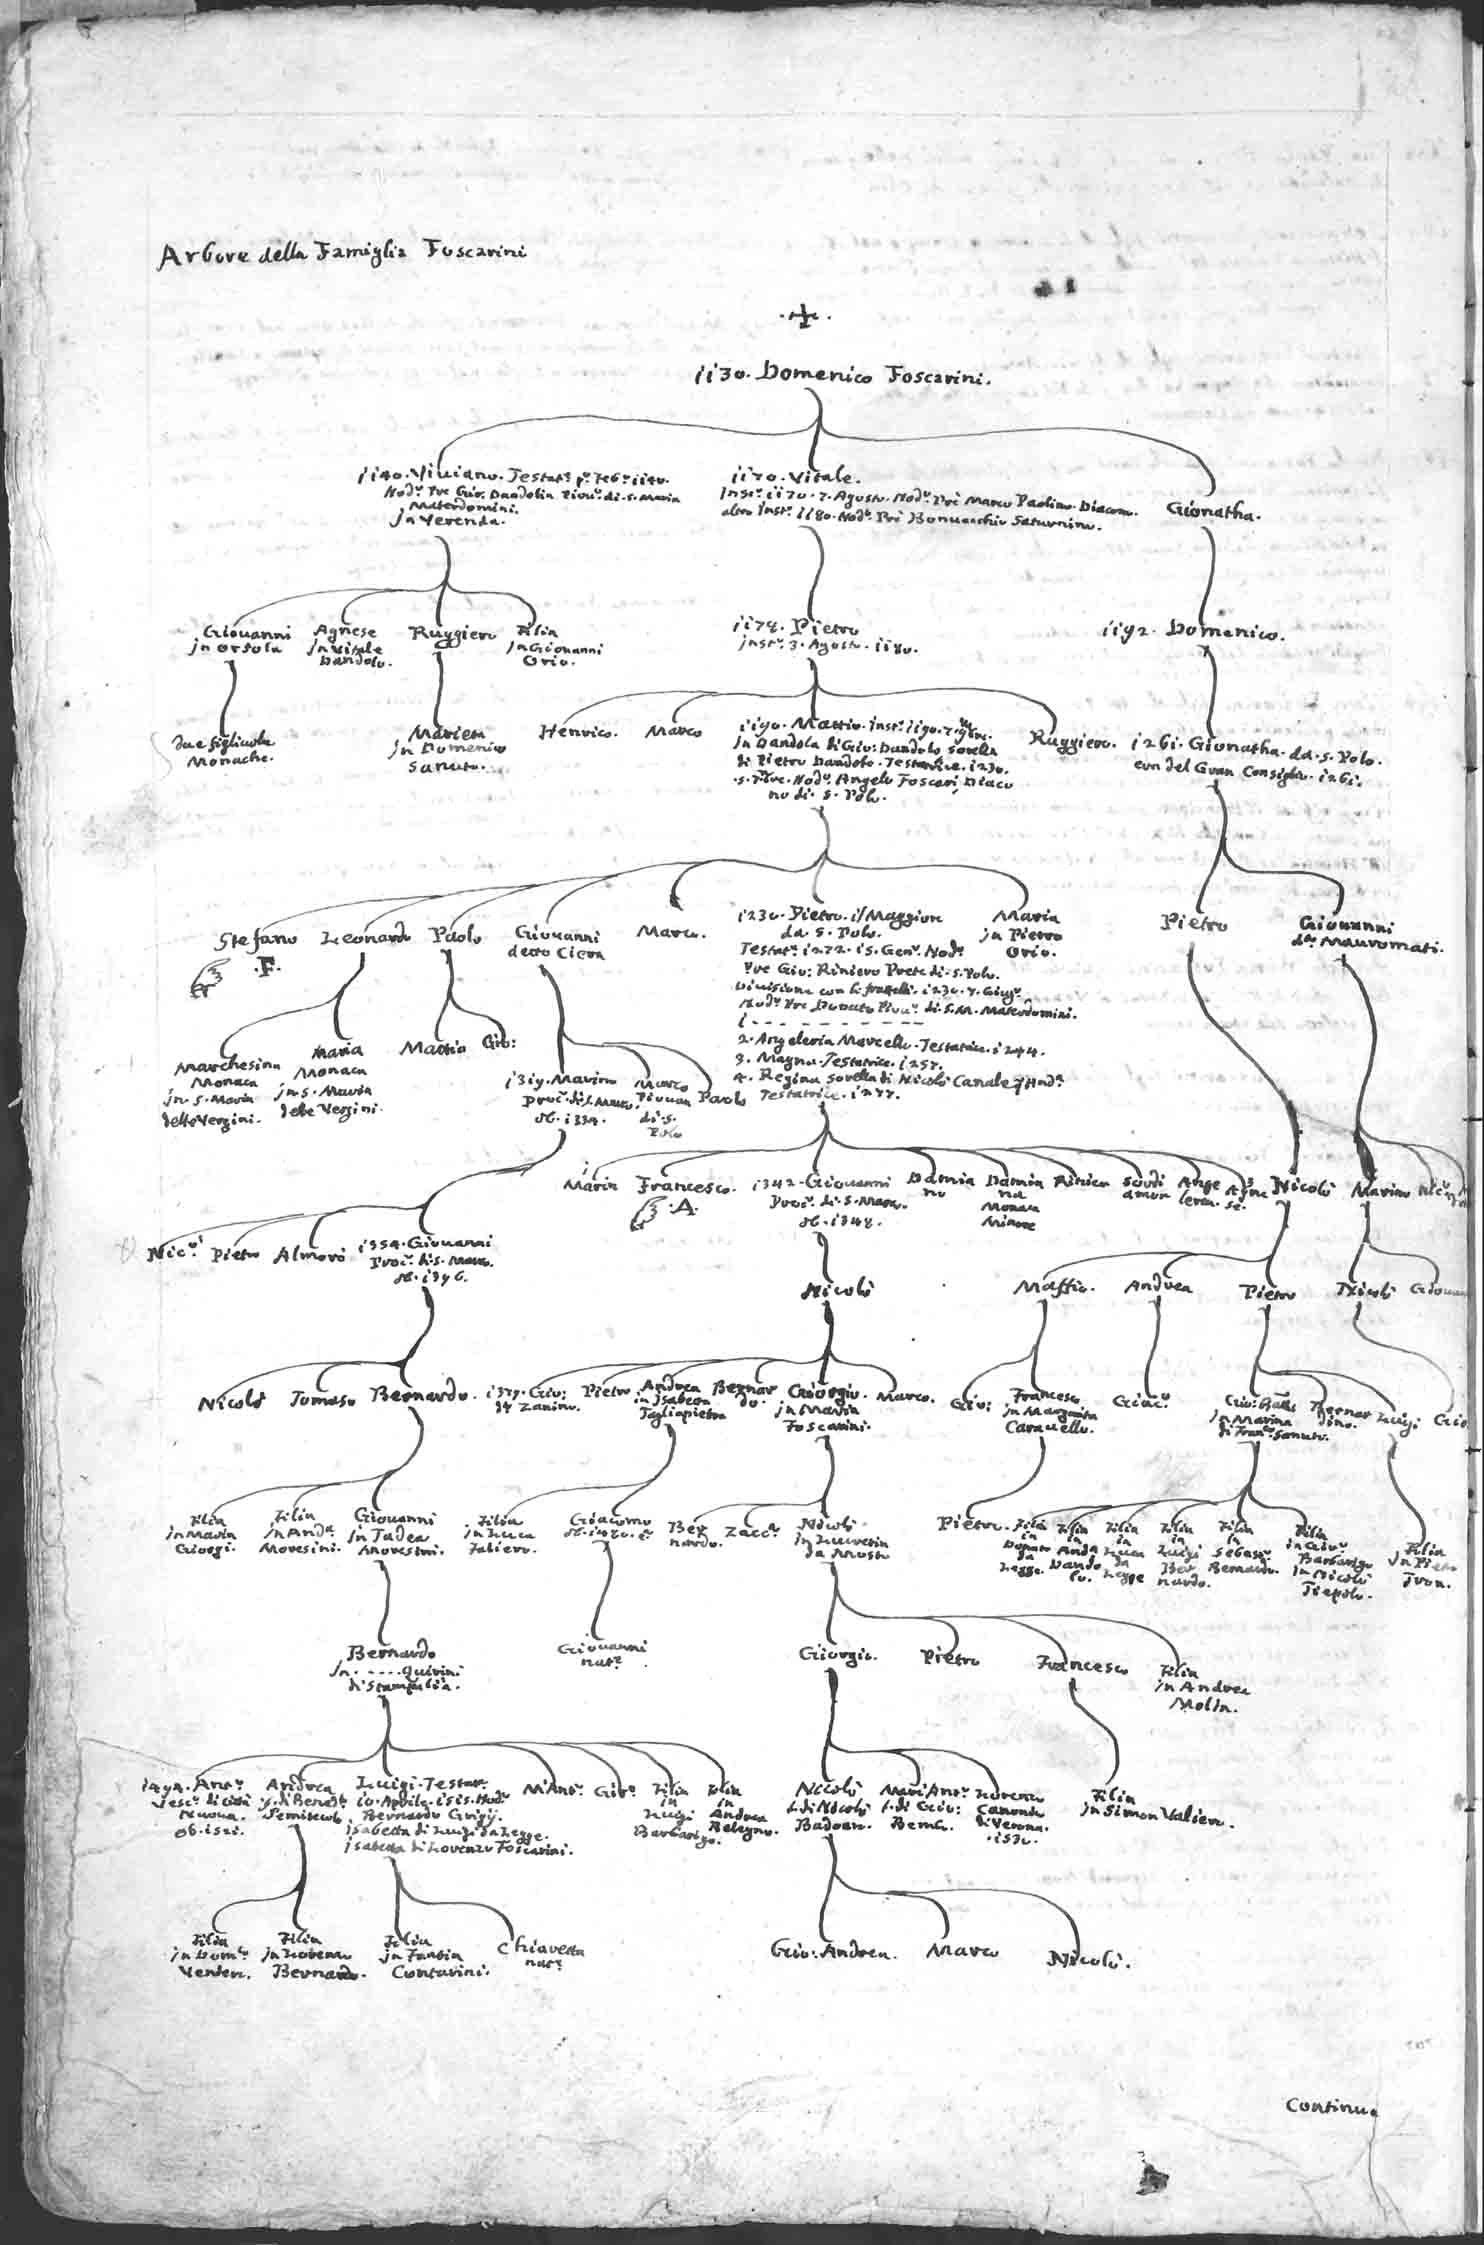 Arbore della Famiglia Foscarini
1130. Domenico Foscarini.
1140. Viviano. Testat.
Nod. Pre Gio. Dandolin Piov. di. S. Maria
Materdomini.
jn Verenda.
1170. Vitale.
Instr. 1170. 7. Agosto. Nod. Pre Marco Paolino Diacono.
altro Instr. 1180. Nod. Pre Saturnino.
Gionatha.
Giovanni
jn Orsola
Agnese
jn Vitale
Dandolo.
Ruggiero
Filia
jn Giovanni
Orio.
1174. Pietro
jnstr. 3. Agosto. 1180.
1192. Domenico.
due figliuole
Monache.
Marieta
jn Domenico
Sanuto.
Henrico.
Marco
1190. Mattio. instr. 1190.
jn Dandola di Gio: Dandolo sorella
di Pietro Dandolo. Testatrice. 1230.
Nod. Angelo Foscari Diaco
no di. S. Polo.
Ruggiero.
1261. Gionatha. da. S. Polo.
era del Gran Consiglio. 1261.
Stefano
.F.
Leonardo
Paolo
Giovanni
detto Ciera
Marco.
1230. Pietro. il Maggiore
da. S. Polo.
Testat. 1272. 15. Gen. Nod.
Pre Gio: Riniero Prete di. S. Polo.
Divisione con li fratelli. 1230. 7. Giug.
Nod. Pre Donato Piov. di. S. M. Materdomini.
1 - - - - - - - -
2. Angeleria Marcello. Testatrice. 1244.
3. Magna. Testatrice. 1257.
4. Regina sorella di Nicolò Canale
Testatrice. 1277.
Maria
jn Pietro
Orio.
Pietro
Giovanni
d. Mauromati.
Marchesina
Monaca
jn. S. Maria
delle Vergini.
Maria
Monaca
jn. S. Maria
delle Vergini.
Mattio
Gio:
1319. Marino
Proc. di. S. Marco.
ob. 1334.
Marco
Piovan
di. S.
Polo
Paolo
Marin
Francesco.
.A.
1342. Giovanni
Proc. di. S. Marco.
ob. 1348.
Damia
no
Damia
na
Monaca
Minore
Rinieri
Scordi
amor
Ange
lera.
Agne
se.
Nicolò
Marino
Nic.
Nic.
Pietro
Almorò
1354. Giovanni
Proc. di. S. Marco.
ob. 1396.
Nicolò
Maffio.
Andrea
Pietro
Nicolò
Giovan
Nicolò
Tomaso
Bernardo.
1379. Gio:
dt. Zanino.
Pietro
Andrea
in Isabeta
Tagliapietra
Bernar
do.
Giorgio.
jn Maria
Foscarini.
Marco.
Gio:
Francesco
jn Margarita
Caravello.
Giac.
Gio: Batt.
jn Marina
di Fran. Sanuto.
Bernar
dino.
Luigi
Gio
Filia
jn Marin
Giorgi.
Filia
jn And.
Moresini.
Giovanni
jn Tadea
Moresini.
Filia
jn Luca
Faliero.
Giacomo
ob. 1480.
Ber
nardo.
Zacc.
Nicolò
jn Lucretia
da Mosto
Pietro.
Filia
in
Donato
da
Legge.
Filia
in
Anda
Dando
lo.
Filia
in
Luca
da
Legge
Filia
in
Luigi
Ber
nardo.
Filia
in
Sebast.
Bernardo.
Filia
in Gio.
Barbarigo
jn Nicolò
Tiepolo.
Filia
jn Pietro
Tron.
Bernardo
jn. - - - - Quirini
di Stampalia.
Giovanni
nat.
Giorgio.
Pietro
Francesco
Filia
in Andrea
Molin.
1494. Ant.
Vesc. di Città
Nuova.
ob. 1521.
Andrea
di Bened.
Semitecolo
Luigi. Testat.
10. Aprile. 1515. Nod.
Bernardo Grigij.
jsabetta di Luigi da Legge.
jsabetta di Lorenzo Foscarini.
M. Ant.
Gir.
Filia
in
Luigi
Barbarigo.
Filia
in
Andrea
Belegno.
Nicolò
f. di Nicolò
Badoer.
Marc'Ant.
f. di Gio:
Bembo.
Lorenzo
Canonico
di Verona.
1530.
Filia
jn Simon Valier.
Filia
jn Dom.
Venier.
Filia
jn Lorenzo
Bernardo.
Filia
jn Fantin
Contarini.
Chiaretta
nat.
Gio: Andrea.
Marco
Nicolò.
Continua